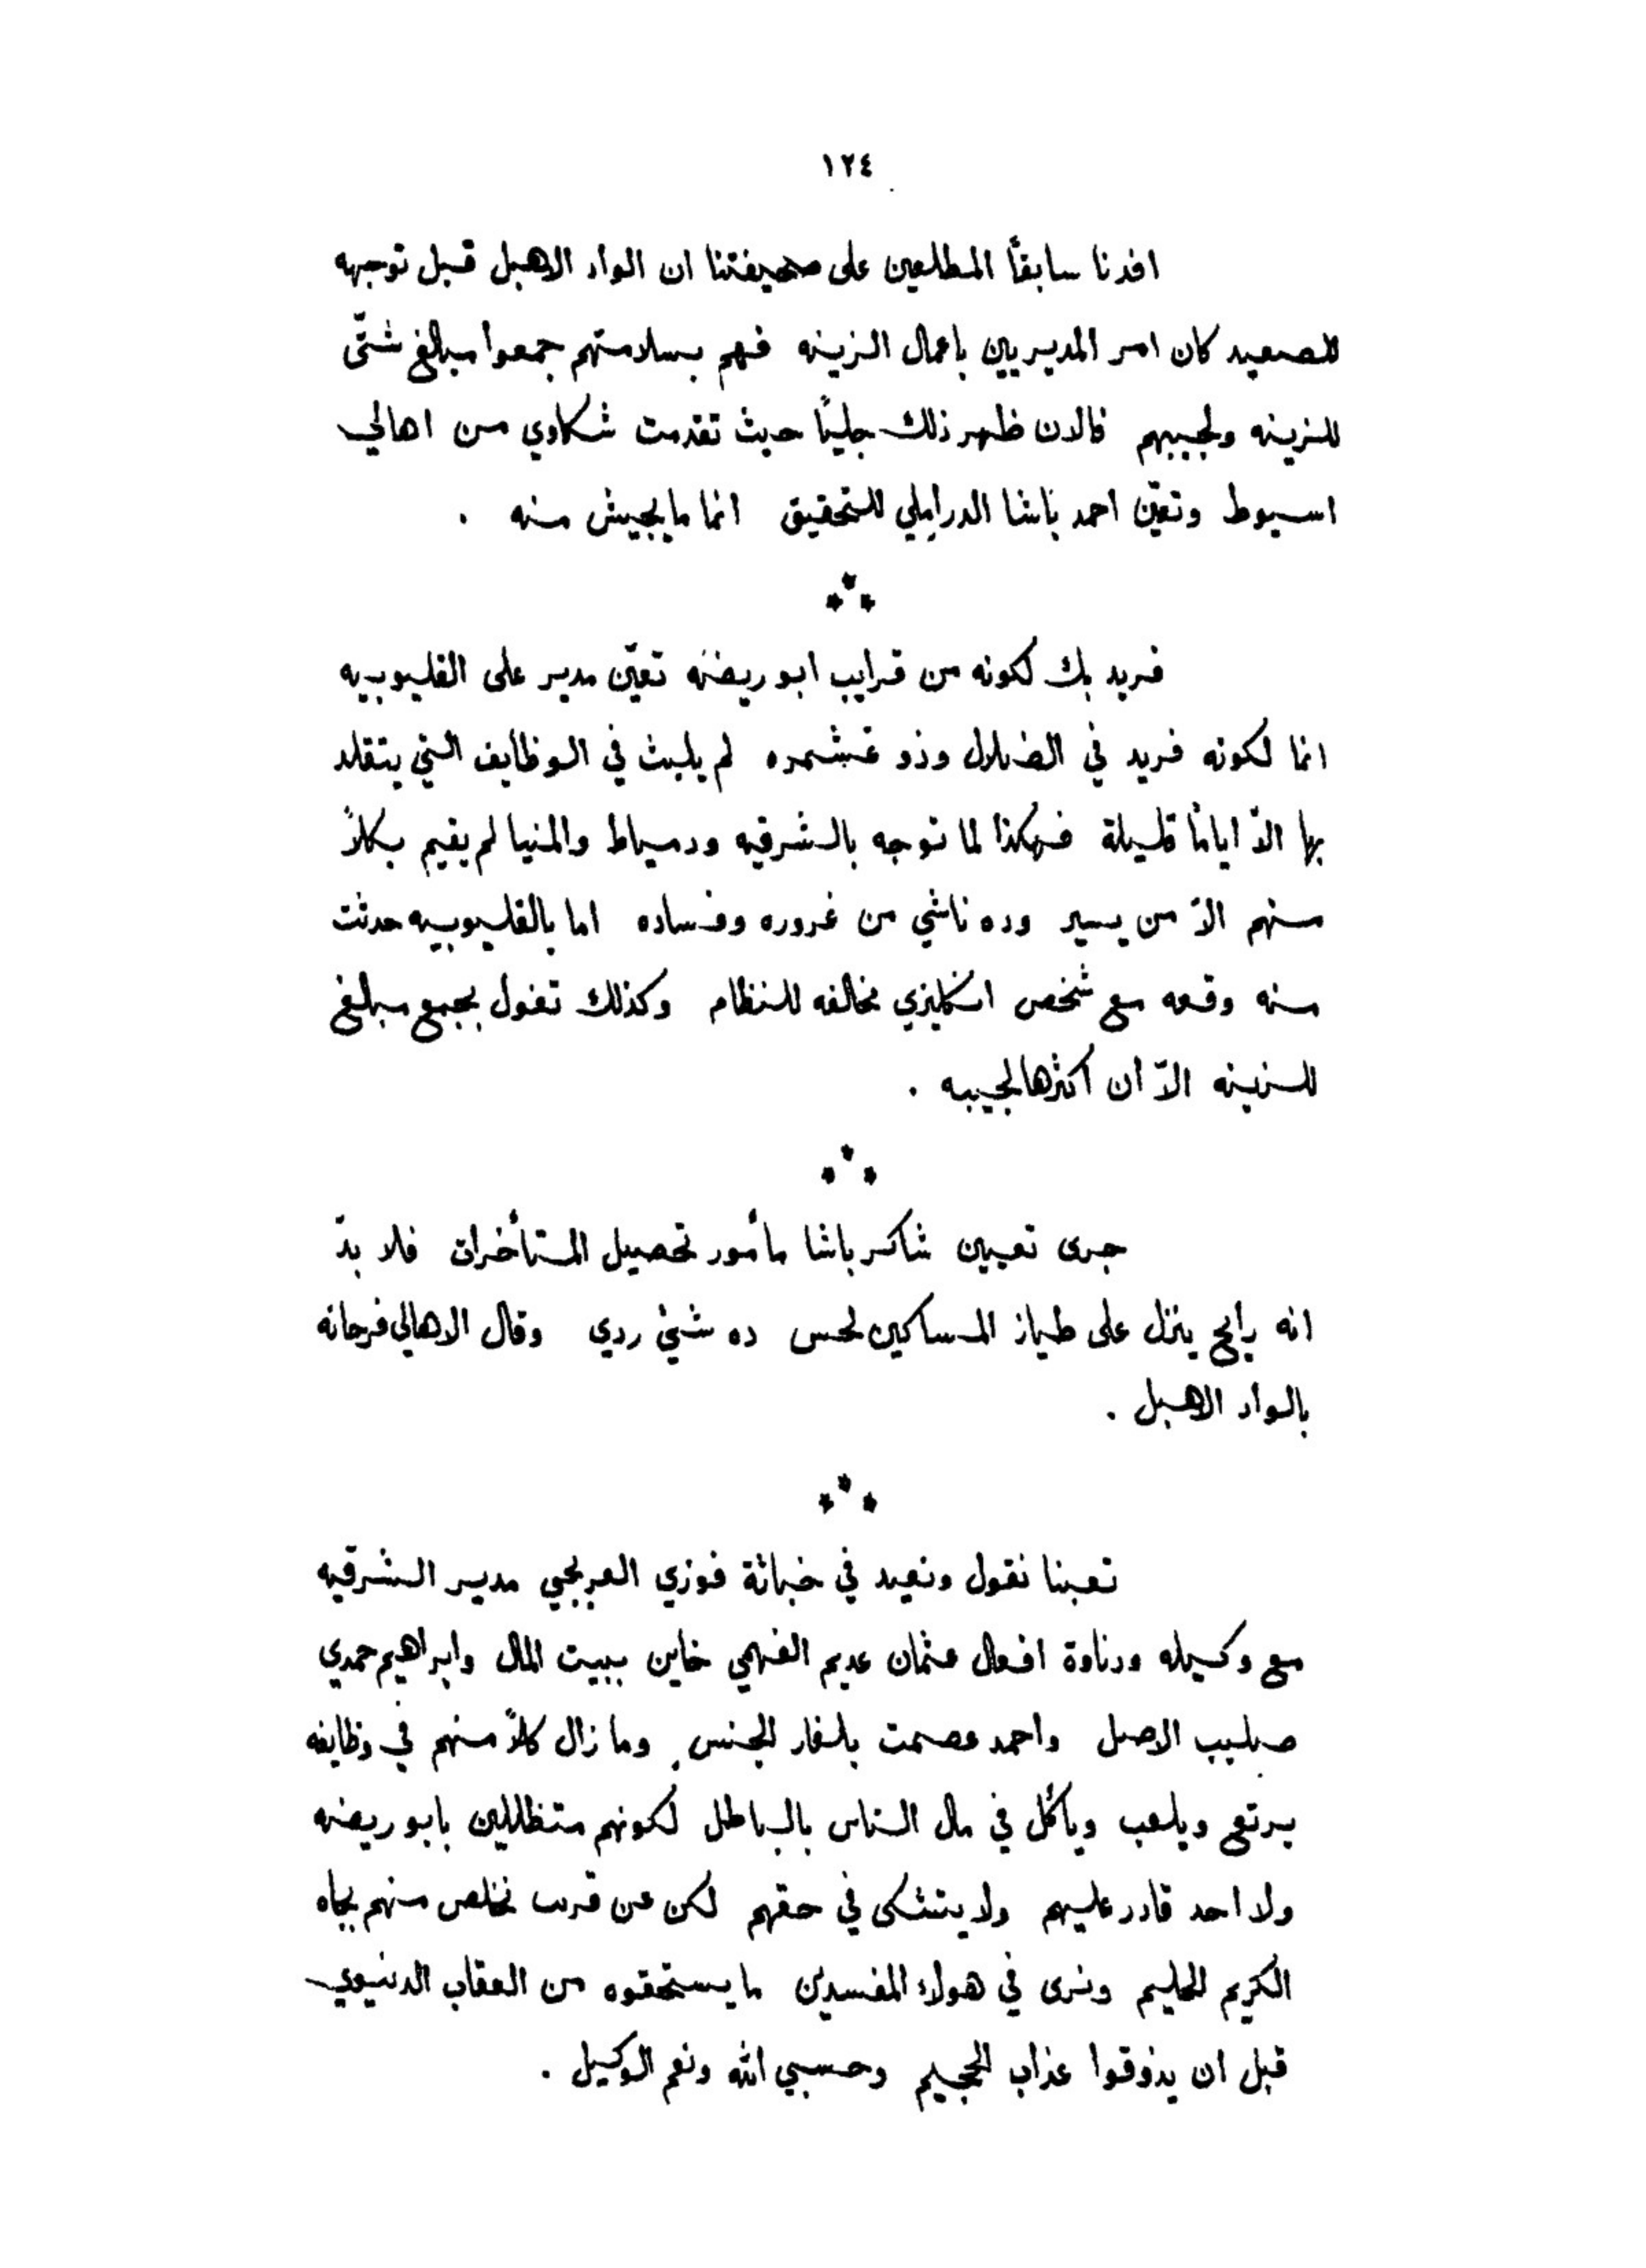 ١٢٤
افدنا سابقاً المطلعين على صحيفتنا ان الواد الاهبل قبل توجهه
للصعيد كان امر المديريين باعمال الزينه فهم بسلامتهم جمعوا مبالغ شتّى
للزينه ولجيبهم فالان ظهر ذلك جليًا حيث تقدمت شكاوي من اهالي
اسيوط وتعيّن احمد باشا الدراملي للتحقيق انما ما يجيش منه .
فريد بك لكونه من قرايب ابو ريضه تعيّن مدير على القليوبيه
انما لكونه فريد في الضلال وذو غشمره لم يلبث في الوظايف التي يتقلد
بها الاّ اياماً قليلة فهكذا لما توجه بالشرقيه ودمياط والمنيا لم يقيم بكلاً
منهم الاّ من يسير وده ناشي من غروره وفساده اما بالقليوبيه حدثت
منه وقعه مع شخص انكليزي مخالفه للنظام وكذلك تغول بجمع مبلغ
للزينه الاّ أن اكثرها لجيبه .
جرى تعيين شاكر باشا مأمور تحصيل المتأخرات فلا بدّ
انه رايح ينزل على طياز المساكين لحس ده شئ ردي وقال الاهالي فرحانه
بالواد الاهبل .
تعبنا نقول ونعيد في خباثة فوزي العربجي مدير الشرقيه
مع وكيله ودناوة افعال عثمان عديم الفهمي خاين ببيت المال وابراهيم حمدي
صليب الاصل واحمد عصمت بلغار الجنس وما زال كلاً منهم في وظايفه
يرتع ويلعب ويأكل في مال الناس بالباطل لكونهم متظللين بابو ريضه
ولا احد قادر عليهم ولا يتشكى في حقهم لكن عن قريب نخلص منهم بجاه
الكريم الحليم ونرى في هولاء المفسدين ما يستحقوه من العقاب الدنيوي
قبل ان يذوقوا عذاب الجحيم وحسبي الله ونعم الوكيل .